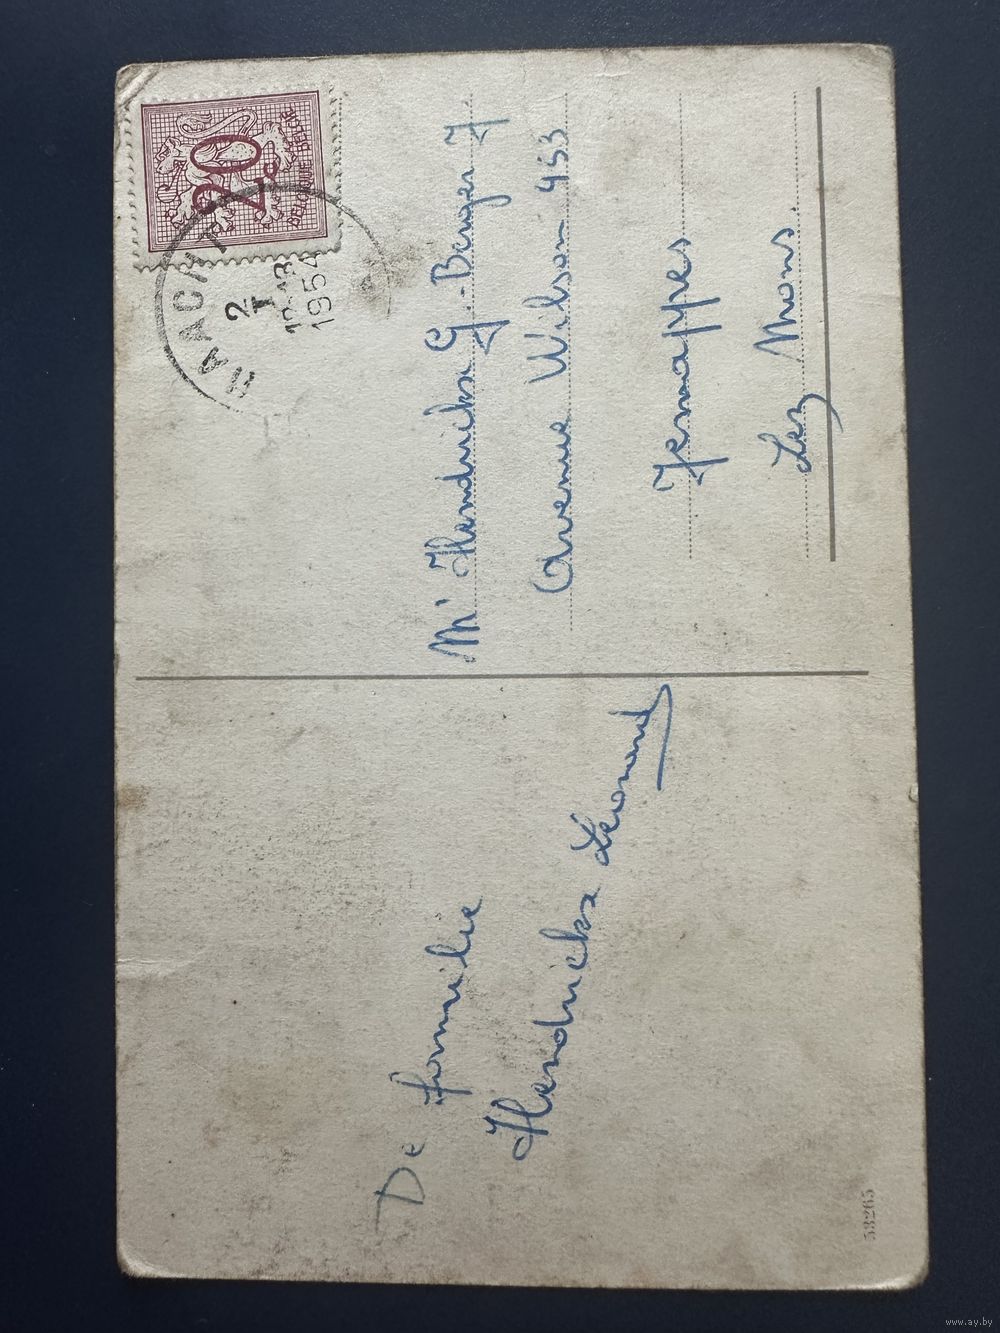 De familie
Hendrickx Léonard
20
BELGIQUE BELGIE
HAACHT
2
I
12-13
1954
Mr Hendrickx G.-Berger J
Avenue Wilson 453
Jemappes
Lez Mons.
53265
www.ay.by